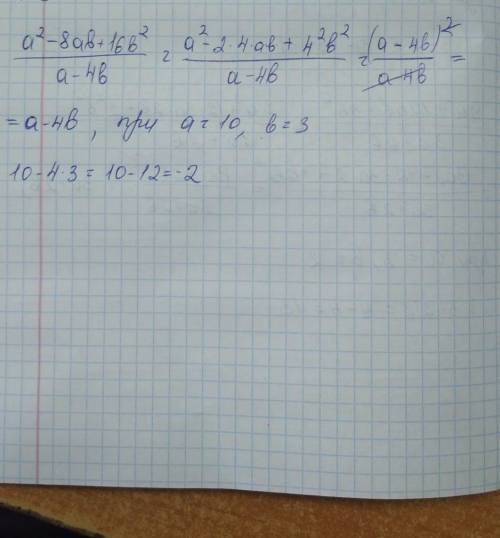 (a² - 8ab + 16b²)/(a - 4b) = (a² - 2·4·ab + 4²b²)/(a - 4b) = (a - 4b)²/(a - 4b) =
= a - 4b, при a = 10, b = 3
10 - 4·3 = 10 - 12 = -2